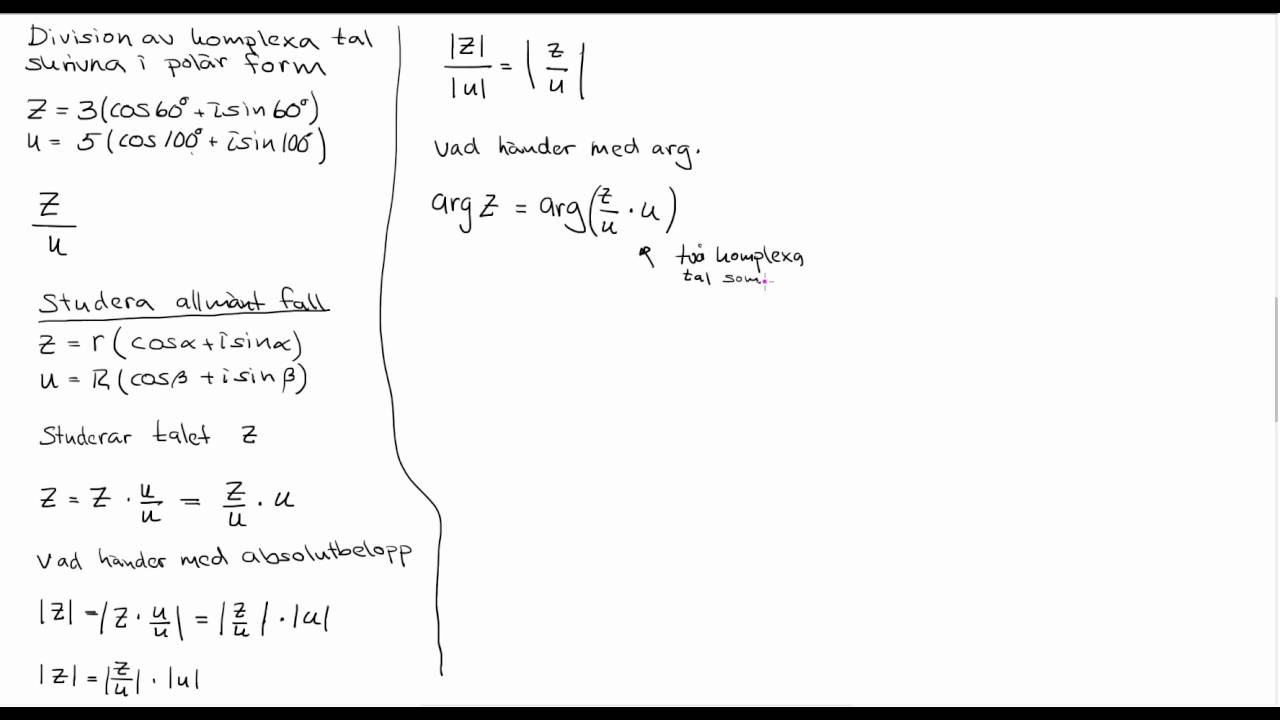 Division av komplexa tal
skrivna i polär form
z = 3(cos60° + i sin60°)
u = 5(cos100° + i sin100°)
z/u
Studera allmänt fall
z = r(cosα + i sinα)
u = R(cosβ + i sinβ)
Studerar talet z
z = z · u/u = z/u · u
Vad händer med absolutbelopp
|z| = |z · u/u| = |z/u| · |u|
|z| = |z/u| · |u|
|z|/|u| = |z/u|
Vad händer med arg.
arg z = arg(z/u · u)
två komplexa
tal som